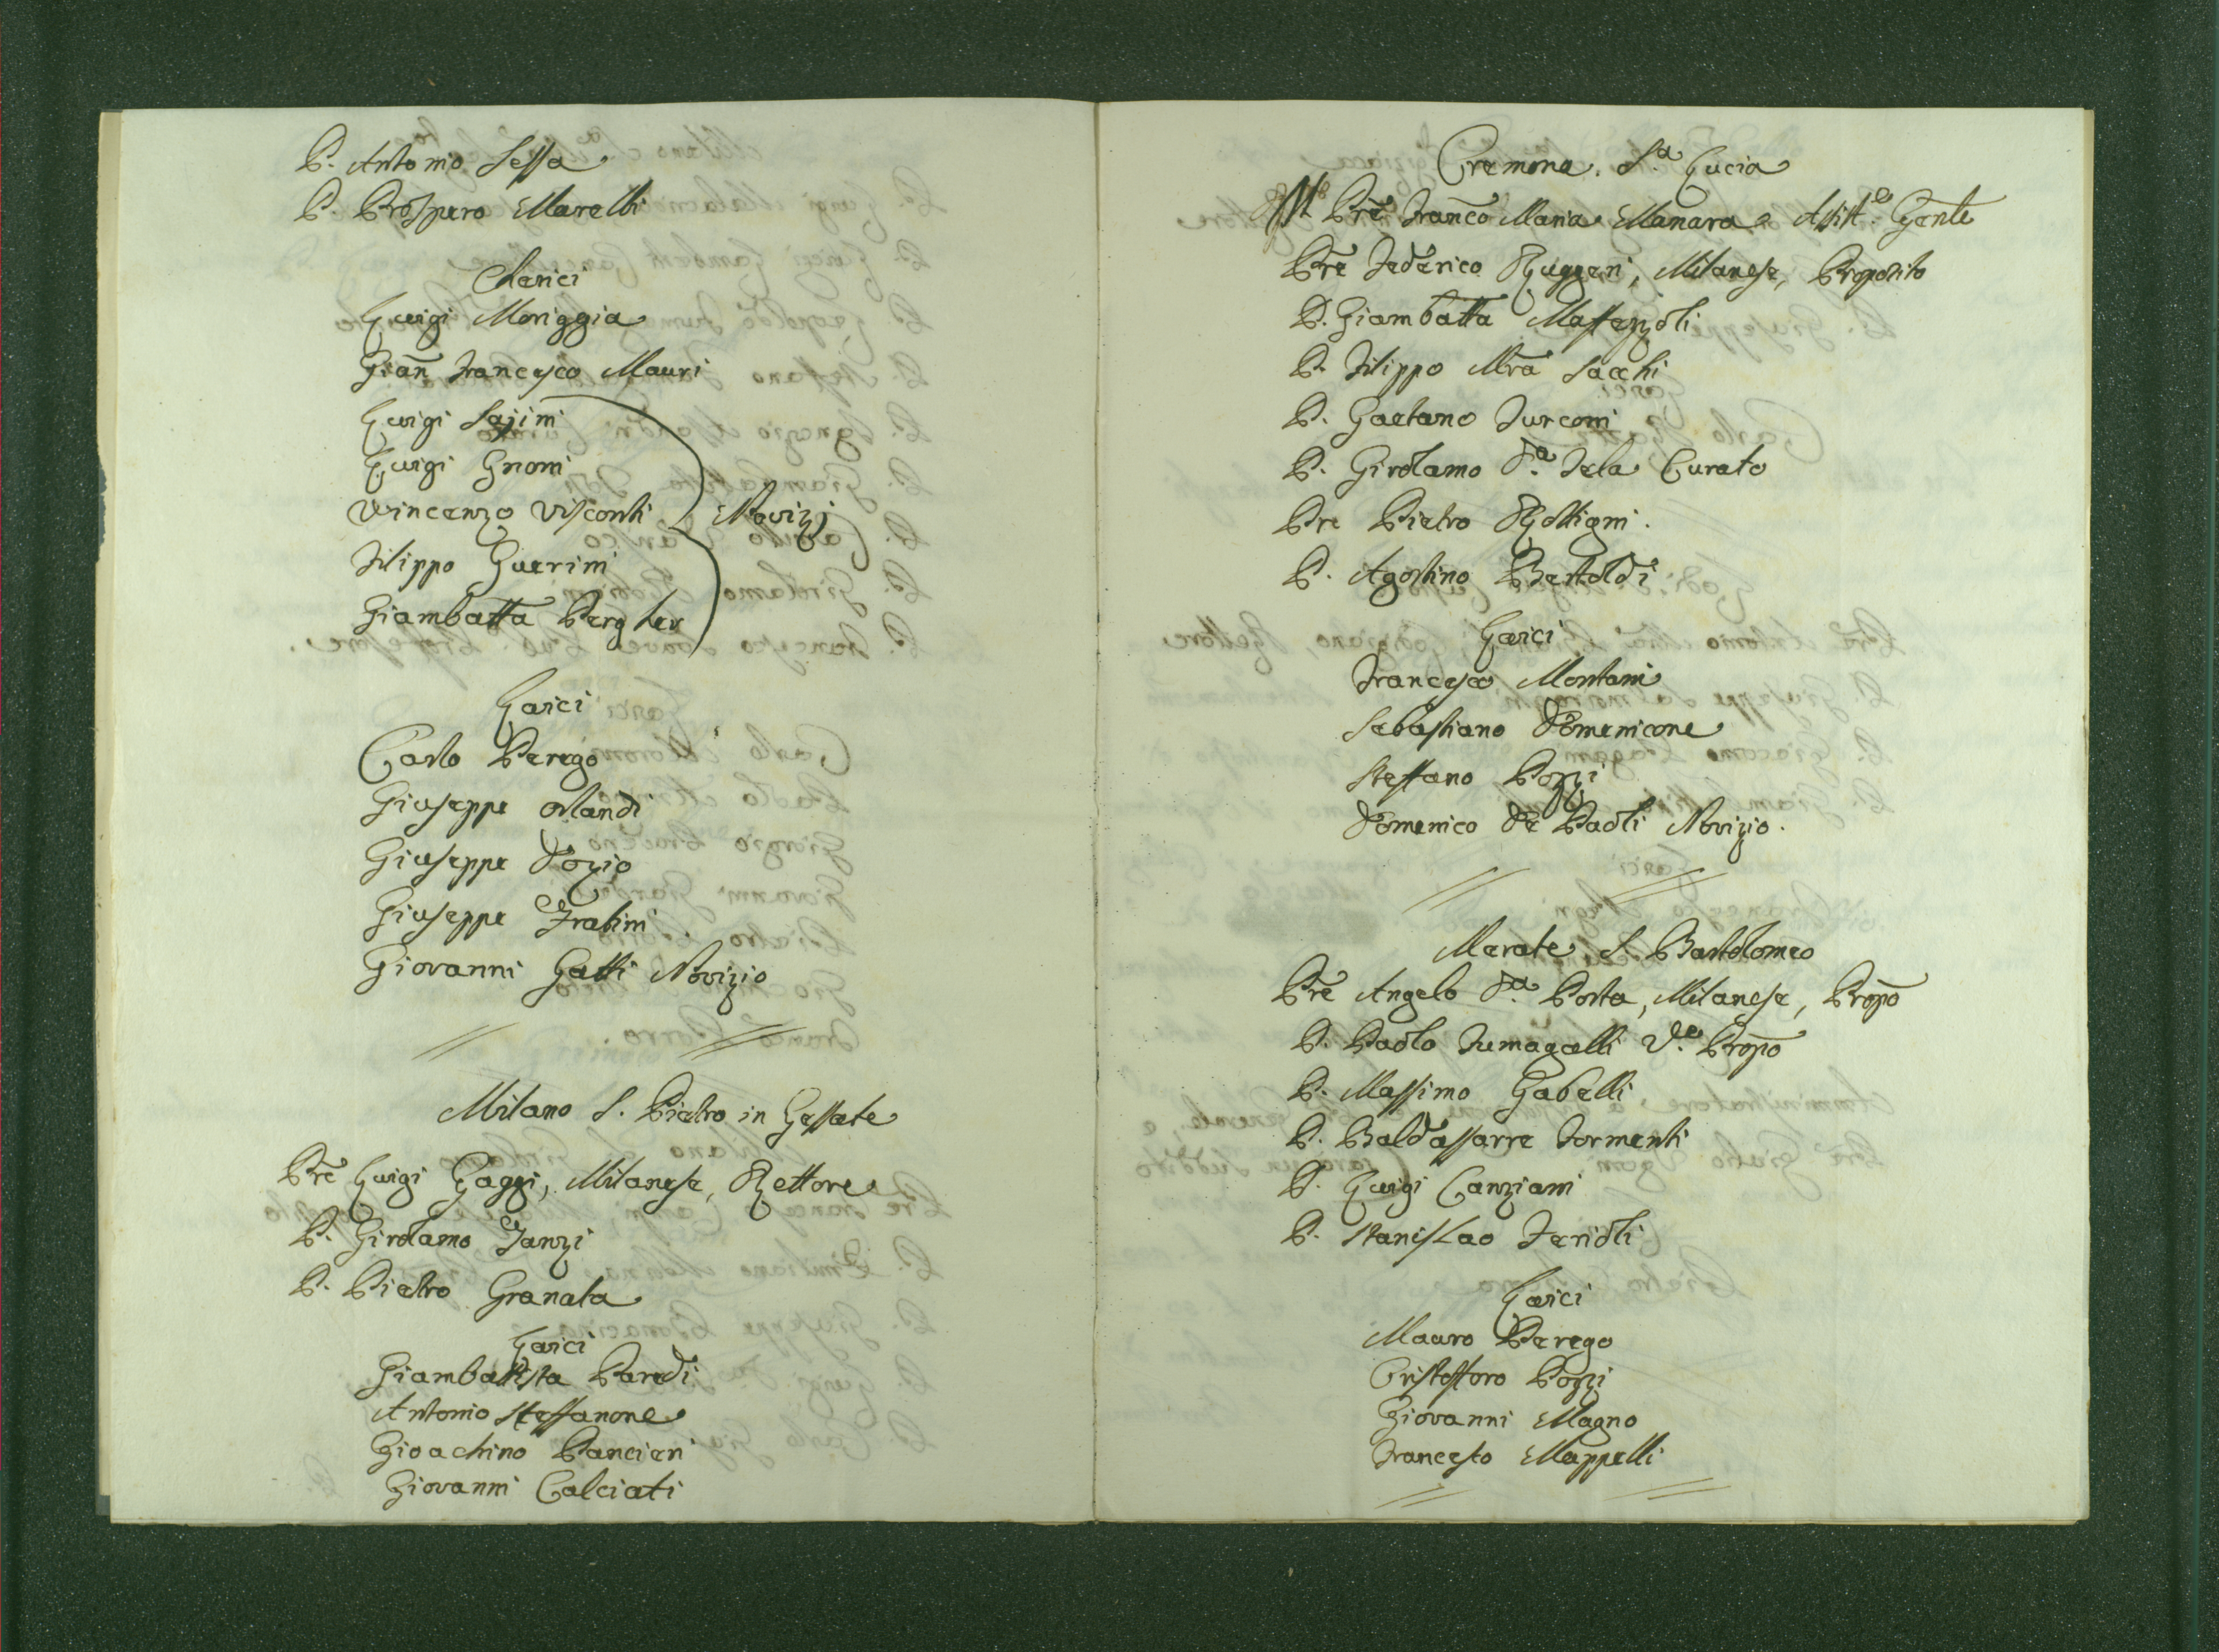 P. Antonio Sessa
P. Prospero Marelli
Cherici
Luigi Moriggia
Gian Francesco Mauri
Luigi Sajini
Luigi Grioni
Vincenzo Visconti Novizj
Filippo Guerini
Giambatta Pergher
Laici
Carlo Perego
Giuseppe Orlandi
Giuseppe Dozio
Giuseppe Fratini
Giovanni Gatti Novizio
Milano S. Pietro in Gessate
Pre Luigi Gaggi, Milanese, Rettore
P. Girolamo Fanzi
P. Pietro Granata
Laici
Giambattista Parodi
Antonio Steffanone
Gioachino Pancieri
Giovanni Calciati
Cremona. S.a Lucia
Pre Franco Maria Manara Assist.e Gente
Pre Federico Ruggeri, Milanese, Proposito
P. Giambatta Massazoli
P. Filippo Mra Sacchi
P. Gaetano Turconi
P. Girolamo D.a Tela Curato
Pre Pietro Rottigni.
P. Agostino Bertoldi
Laici
Francesco Montani
Sebastiano Domenicone
Steffano Pozzi
Domenico De Paoli Novizio.
Merate S. Bartolomeo
Pre Angelo D.a Porta, Milanese, Propo
P. Paolo Fumagalli V.e Propo
P. Massimo Gabelli
P. Baldassarre Formenti
P. Luigi Canziani
P. Stanislao Ferioli
Laici
Mauro Perego
Cristofforo Pozzi
Giovanni Magno
Francesco Mappelli